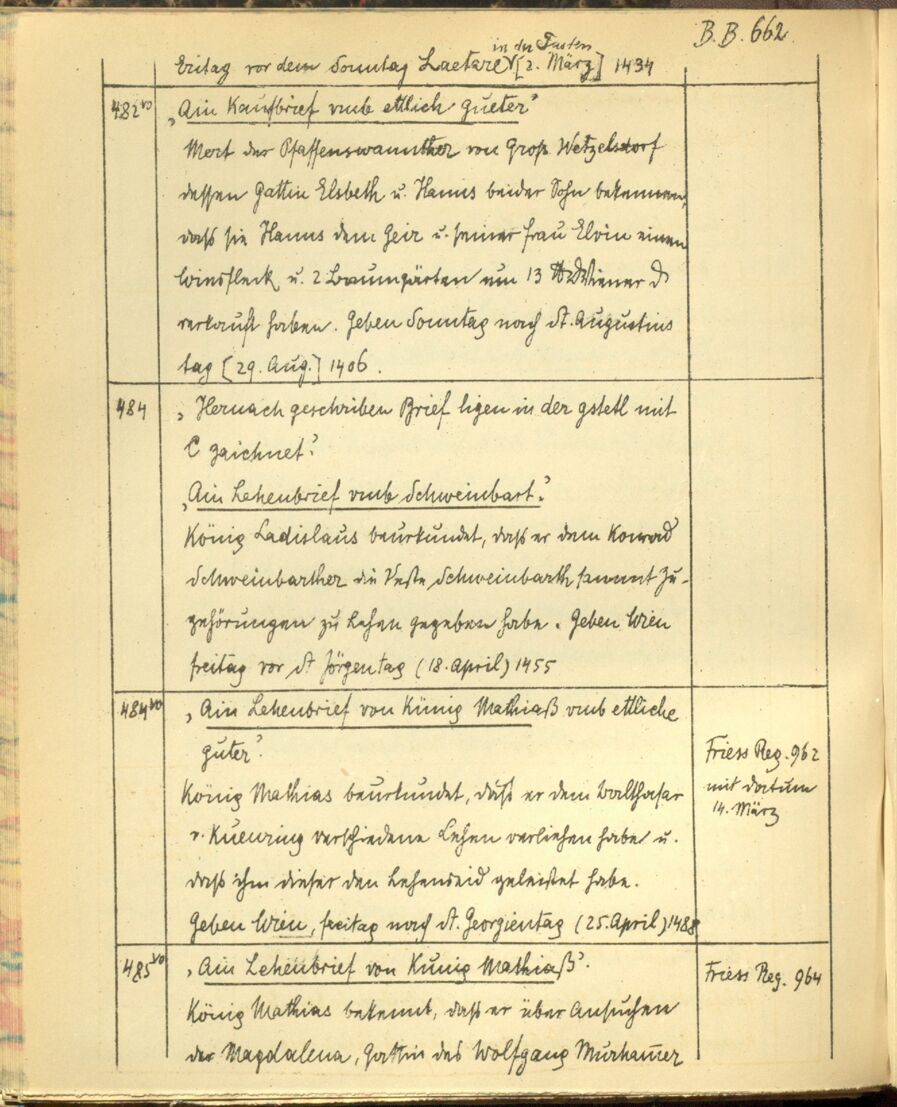 B.B. 662.
in der Fasten
Eritag vor dem Sonntag Laetare [2. März] 1434
482vo „Ain Kaufbrief vmb ettlich gueter“
Mert der Pfaffenswannther von Groß Wetzelsdorf
dessen Gattin Elsbeth u. Hanns beider Sohn bekennen,
daß sie Hanns dem Geir u. seiner Frau Elvin einen
Winsfleck u. 2 Baumgärten um 13 ℔ Wiener ₰
verkauft haben. Geben Sonntag nach St. Augustins
tag [29. Aug.] 1406.
484 „Hernach geschriben Brief ligen in der gstetl mit
C gaichnet“
„Ain Lehenbrief vmb Schweinbart“
König Ladislaus beurkundet, daß er dem Konrad
Schweinbarther die Veste Schweinbarth sammt Zu-
gehörungen zu Lehen gegeben habe. Geben Wien
freitag vor St Jörgentag (18. April) 1455
484vo „Ain Lehenbrief von Künig Mathiaß vmb ettliche
guter“
König Mathias beurkundet, daß er dem Balthasar
v. Kuenring verschiedene Lehen verliehen habe u.
daß ihm dieser den Lehenseid geleistet habe.
Geben Wien, freitag nach St. Georgientag (25. April) 1488
Friess Reg. 962
mit datum
14. März
485vo „Ain Lehenbrief von Kunig Mathiaß“.
König Mathias bekennt, daß er über Ansuchen
der Magdalena, Gattin des Wolfgang Murhamer
Friess Reg. 964